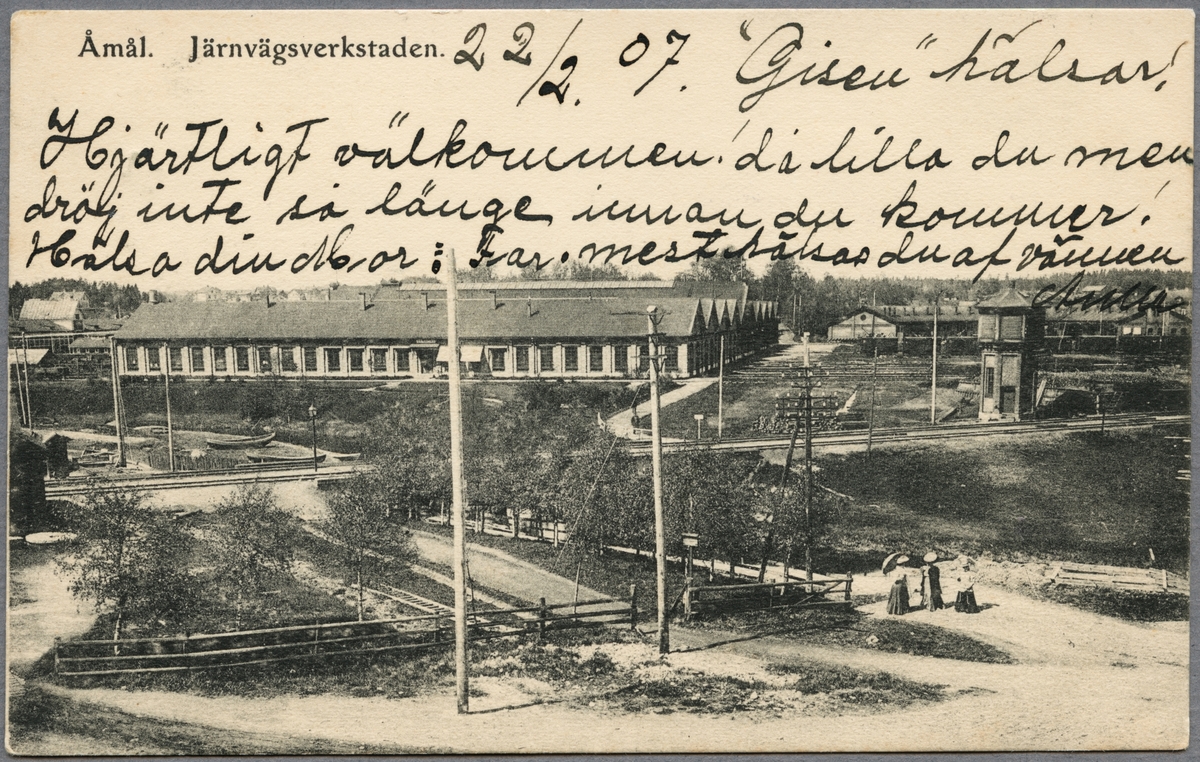 Åmål. Järnvägsverkstaden. 22/2. 07. "Gisen" hälsar!
Hjärtligt välkommen! då lilla du men
dröj inte så länge innan du kommer!
Hälsa din Mor : Far. mest hälsas du af vännen